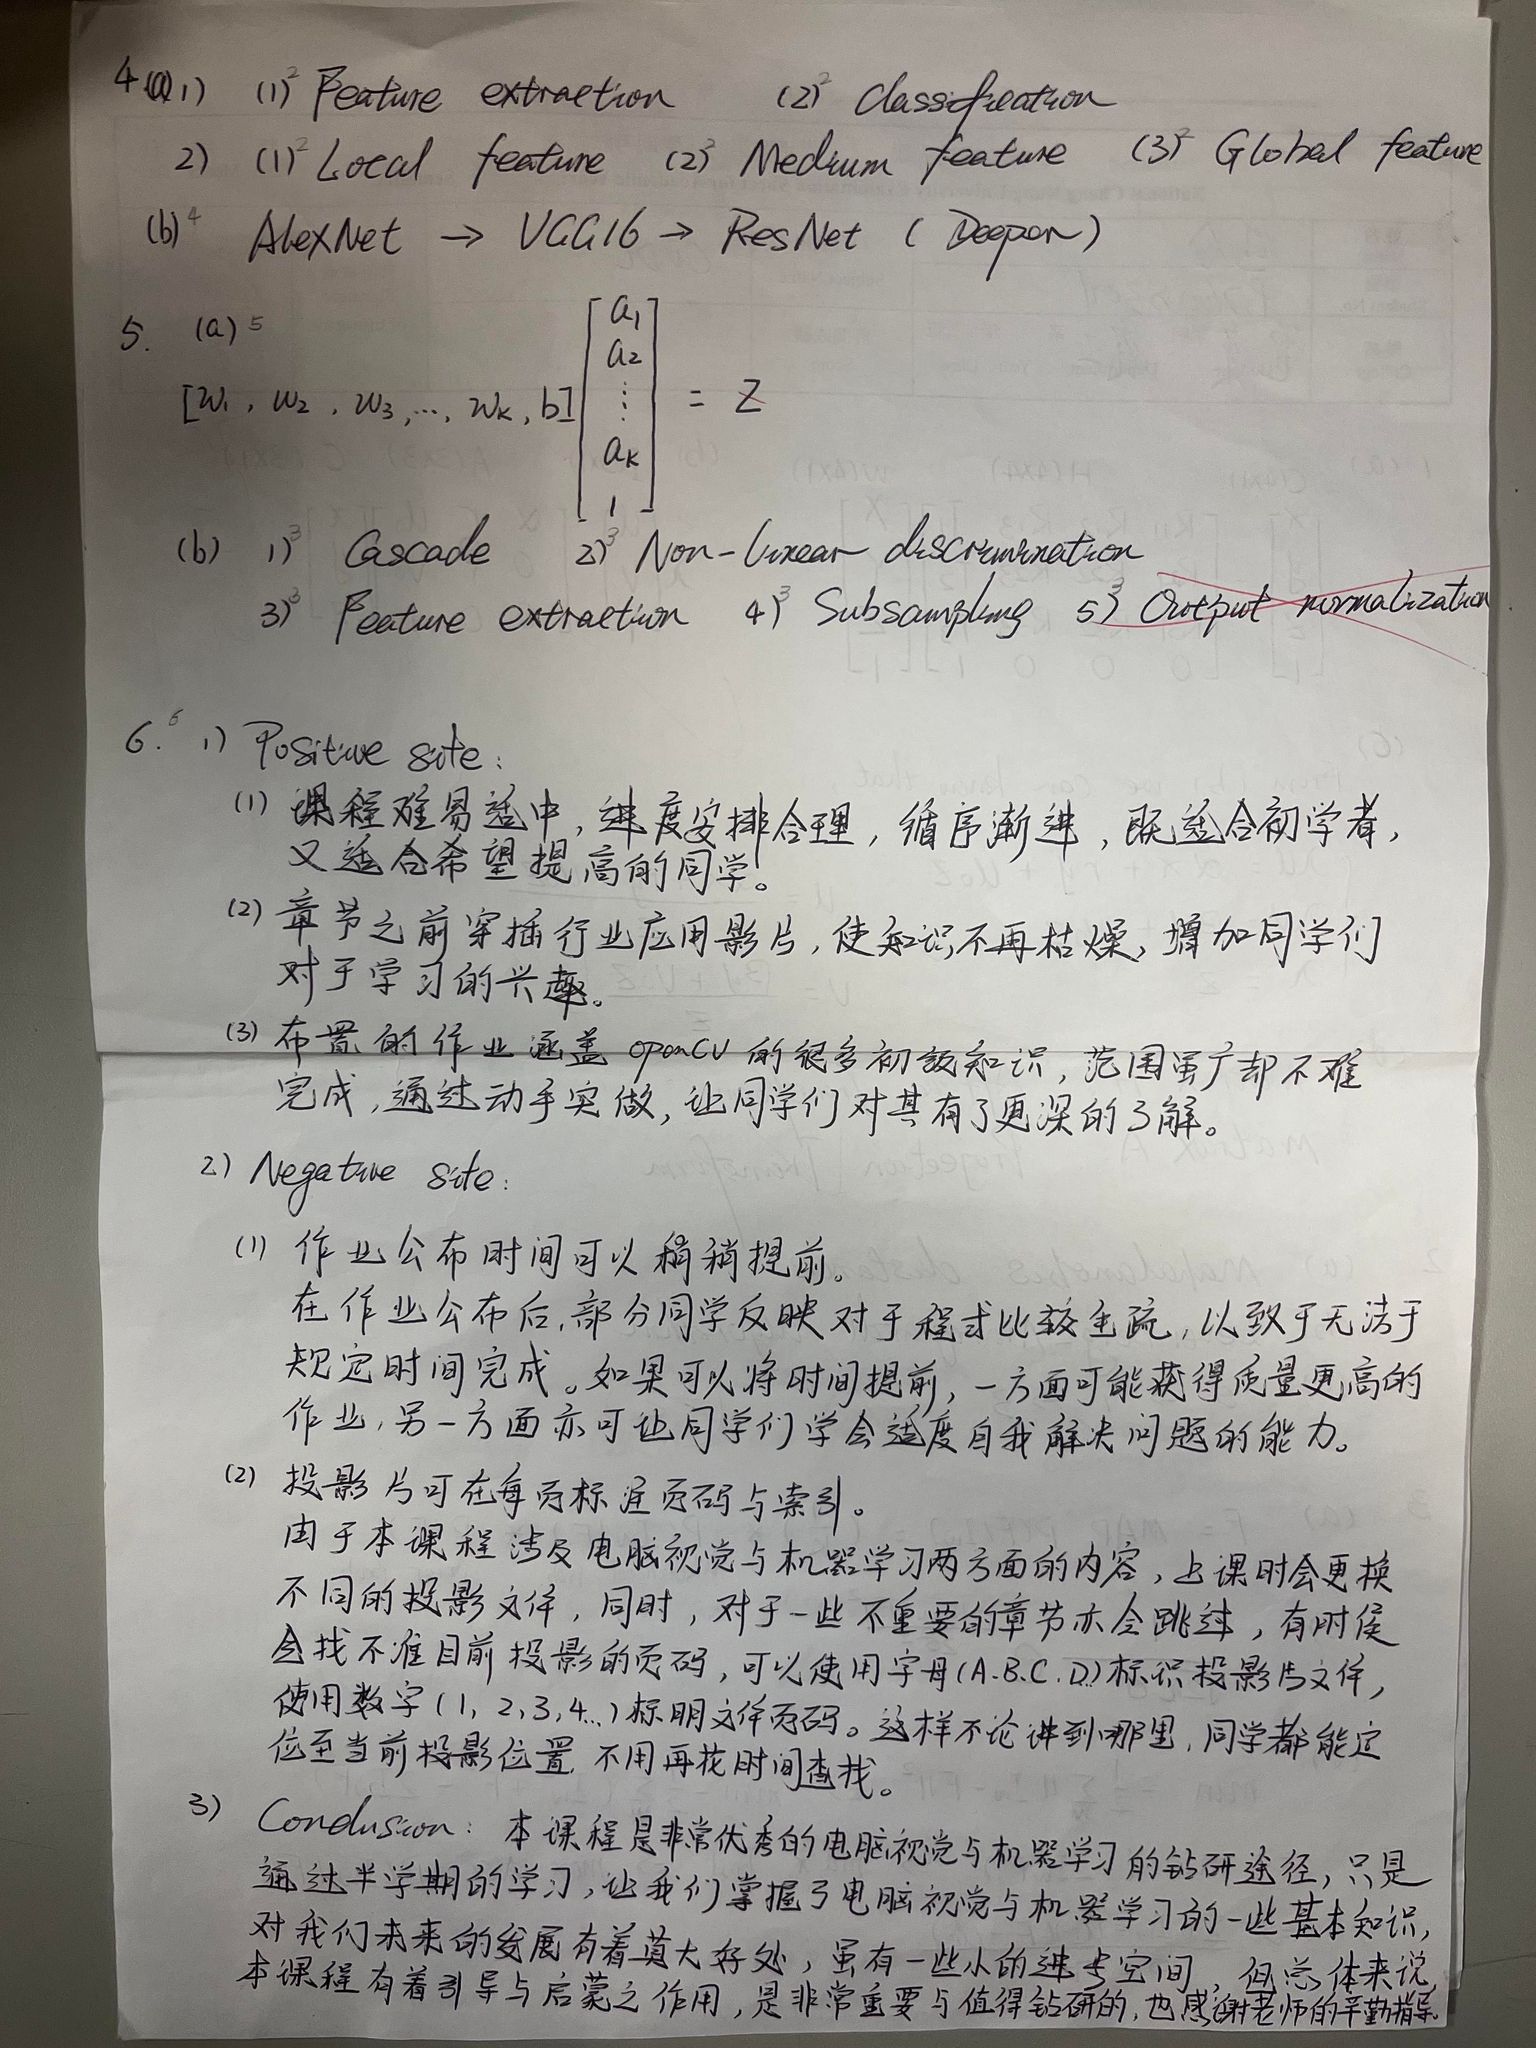 4(a) 1) (1)² Feature extraction (2)² Classification
2) (1)² Local feature (2)² Medium feature (3)² Global feature
(b)⁴ AlexNet → VGG16 → ResNet ( Deeper )
5. (a)⁵
[w₁, w₂, w₃, ..., wₖ, b] [a₁ a₂ ⋮ aₖ 1] = Z
(b) 1)³ Cascade 2)³ Non-linear discrimination
3)³ Feature extraction 4)³ Subsampling 5)³ Output normalization
6.⁶ 1) Positive site:
(1) 课程难易适中，进度安排合理，循序渐进，既适合初学者，
又适合希望提高的同学。
(2) 章节之前穿插行业应用影片，使知识不再枯燥，增加同学们
对于学习的兴趣。
(3) 布置的作业涵盖openCV的很多初级知识，范围虽广却不难
完成，通过动手实做，让同学们对其有了更深的了解。
2) Negative site:
(1) 作业公布时间可以稍稍提前。
在作业公布后，部分同学反映对于程式比较生疏，以致于无法于
规定时间完成。如果可以将时间提前，一方面可能获得质量更高的
作业，另一方面亦可让同学们学会适度自我解决问题的能力。
(2) 投影片可在每页标注页码与索引。
由于本课程涉及电脑视觉与机器学习两方面的内容，上课时会更换
不同的投影文件，同时，对于一些不重要的章节亦会跳过，有时候
会找不准目前投影的页码，可以使用字母(A.B.C.D.)标识投影片文件，
使用数字(1,2,3,4...)标明文件页码。这样不论讲到哪里，同学都能定
位至当前投影位置，不用再花时间查找。
3) Conclusion: 本课程是非常优秀的电脑视觉与机器学习的钻研途径，只是
通过半学期的学习，让我们掌握了电脑视觉与机器学习的一些基本知识，
对我们未来的发展有着莫大好处，虽有一些小的进步空间，但总体来说，
本课程有着引导与启蒙之作用，是非常重要与值得钻研的，也感谢老师的辛勤指导。